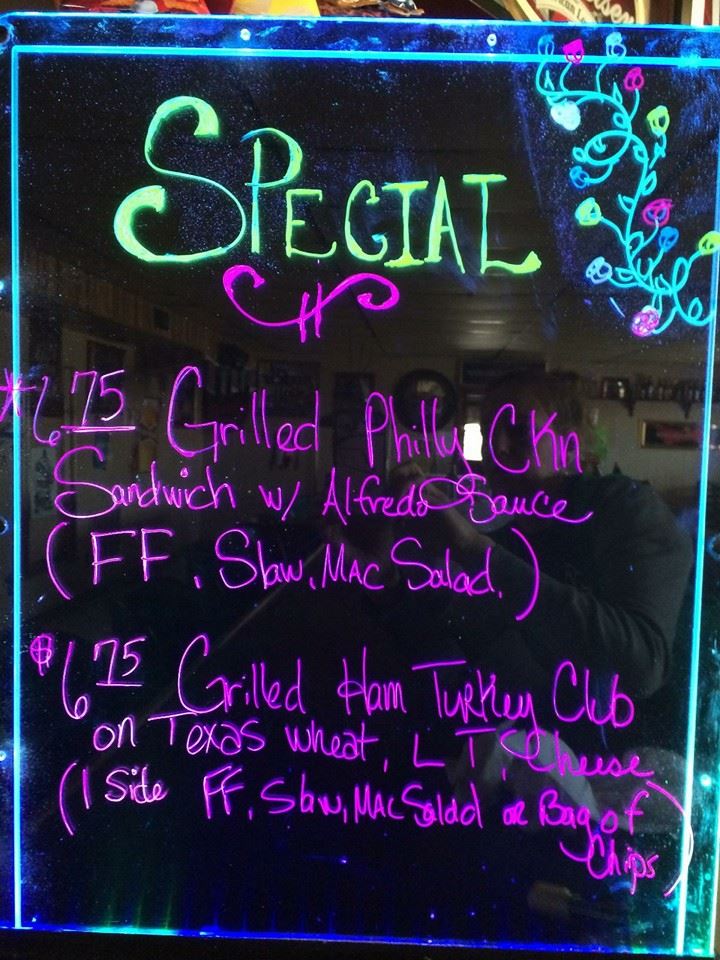 SPECIAL
*6 75 Grilled Philly CKn
Sandwich w/ Alfredo Sauce
(FF, Slaw, MAC Salad.)
$6 75 Grilled Ham Turkey Club
on Texas wheat, L T, Cheese
(1 Side FF, Slaw, MAC Salad or Bag of
Chips)